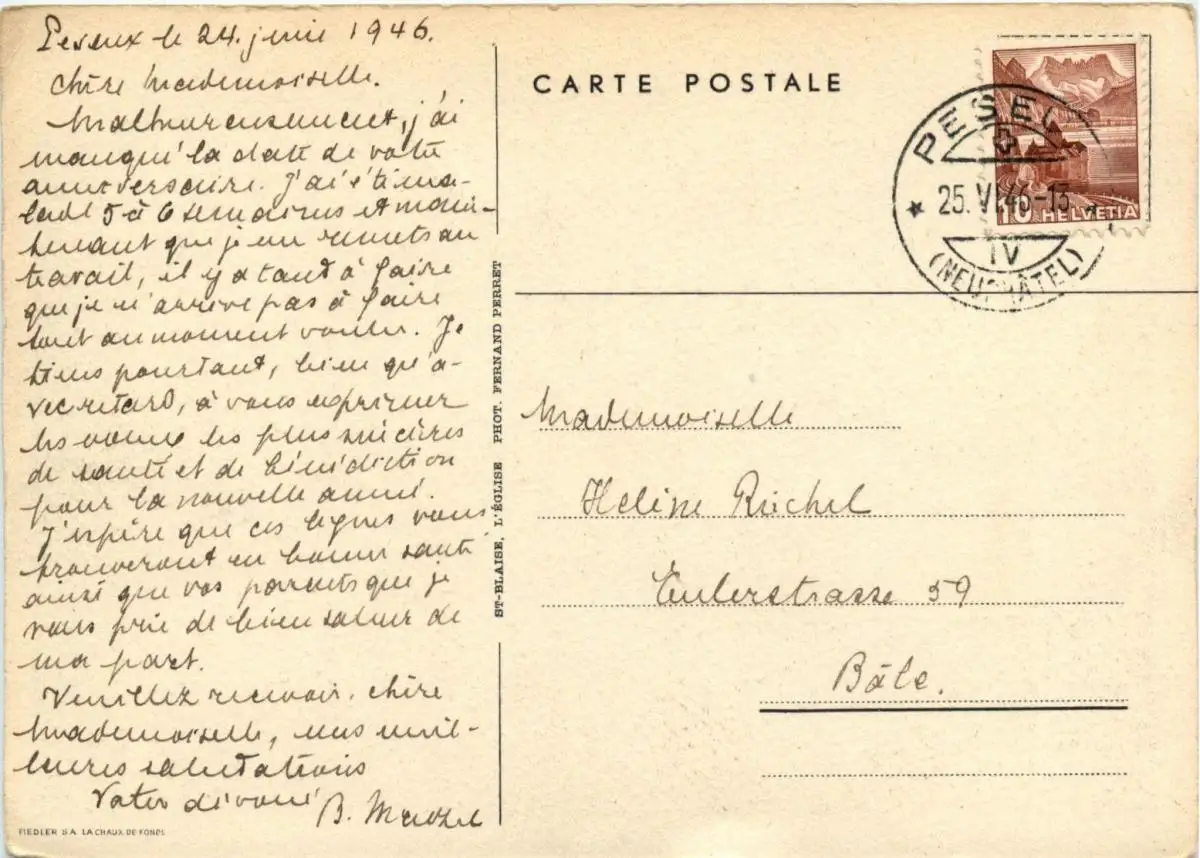 Peseux le 24. juin 1946.
Chère Mademoiselle.
Malheureusement, j'ai
manqué la date de votre
anniversaire. J'ai été ma-
lade 5 à 6 semaines et main-
tenant que je me remets au
travail, il y a tant à faire
que je n'arrive pas à faire
tout au moment voulu. Je
tiens pourtant, bien qu'a-
vec retard, à vous exprimer
les vœux les plus sincères
de santé et de bénédiction
pour la nouvelle année.
J'espère que ces lignes vous
trouveront en bonne santé
ainsi que vos parents que je
vous prie de bien saluer de
ma part.
Veuillez recevoir, chère
Mademoiselle, mes meil-
leures salutations
Votre dévoué
B.
FIEDLER S.A. LA CHAUX-DE-FONDS
ST-BLAISE, L'ÉGLISE PHOT. FERNAND PERRET
CARTE POSTALE
PESEUX
25. VI. 46-13
IV
(NEUCHÂTEL)
10 HELVETIA
Mademoiselle
Hélène
Eulerstrasse 59
Bâle.